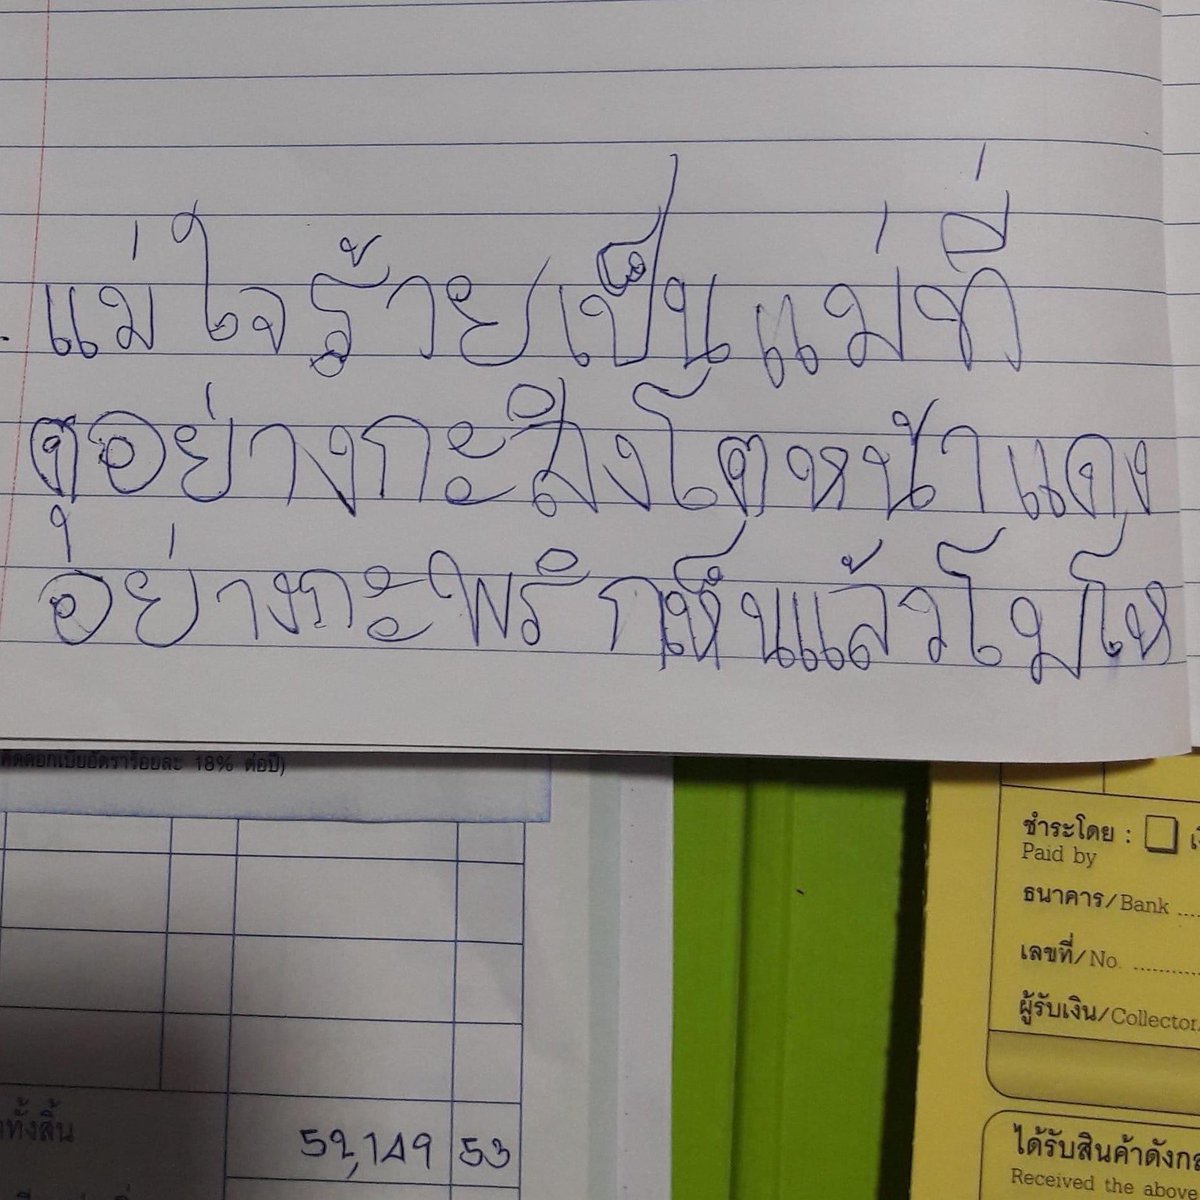 แม่ใจร้ายเป็นแม่ที่
ดุอย่างกะสิงโตหน้าแดง
อย่างกะพริกเห็นแล้วโมโห
คิดดอกเบี้ยอัตราร้อยละ 18% ต่อปี)
ทั้งสิ้น
59,149 53
ชำระโดย :
Paid by
ธนาคาร/Bank
เลขที่/No.
ผู้รับเงิน/Collector
ได้รับสินค้าดังกล
Received the above